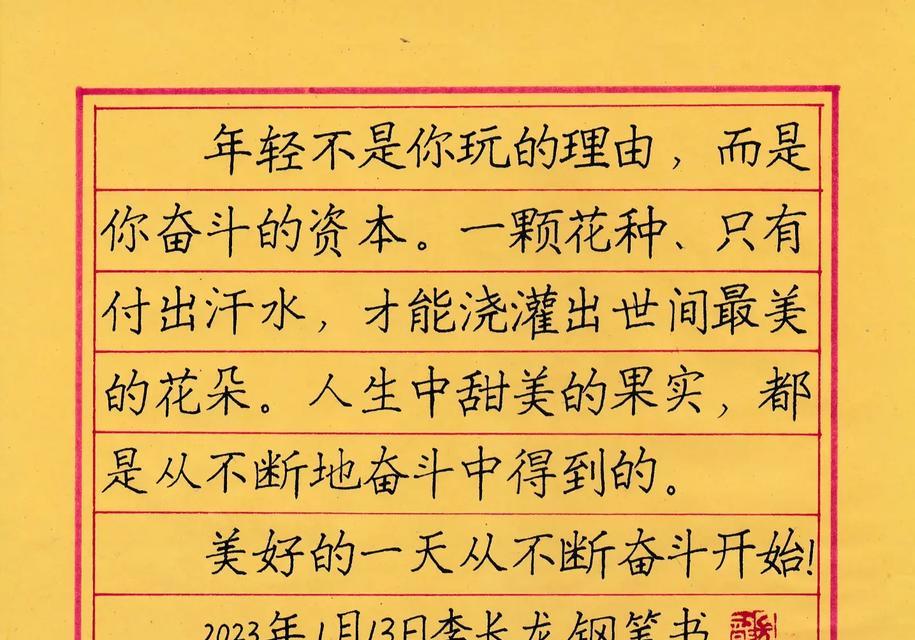 年轻不是你玩的理由，而是
你奋斗的资本。一颗花种、只有
付出汗水，才能浇灌出世间最美
的花朵。人生中甜美的果实，都
是从不断地奋斗中得到的。
美好的一天从不断奋斗开始!
2023年1月13日李长龙钢笔书